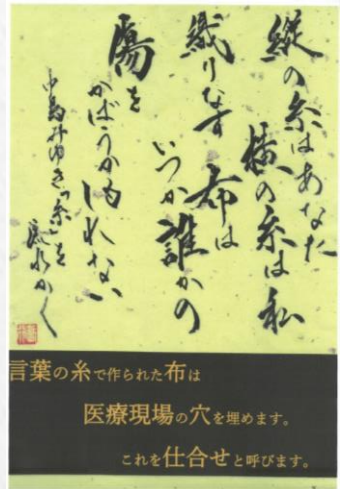 縦の糸はあなた
横の糸は私
織りなす布は
いつか誰かの
傷を
かばうかもしれない
中島みゆき「糸」を
かく
言葉の糸で作られた布は
医療現場の穴を埋めます。
これを仕合せと呼びます。